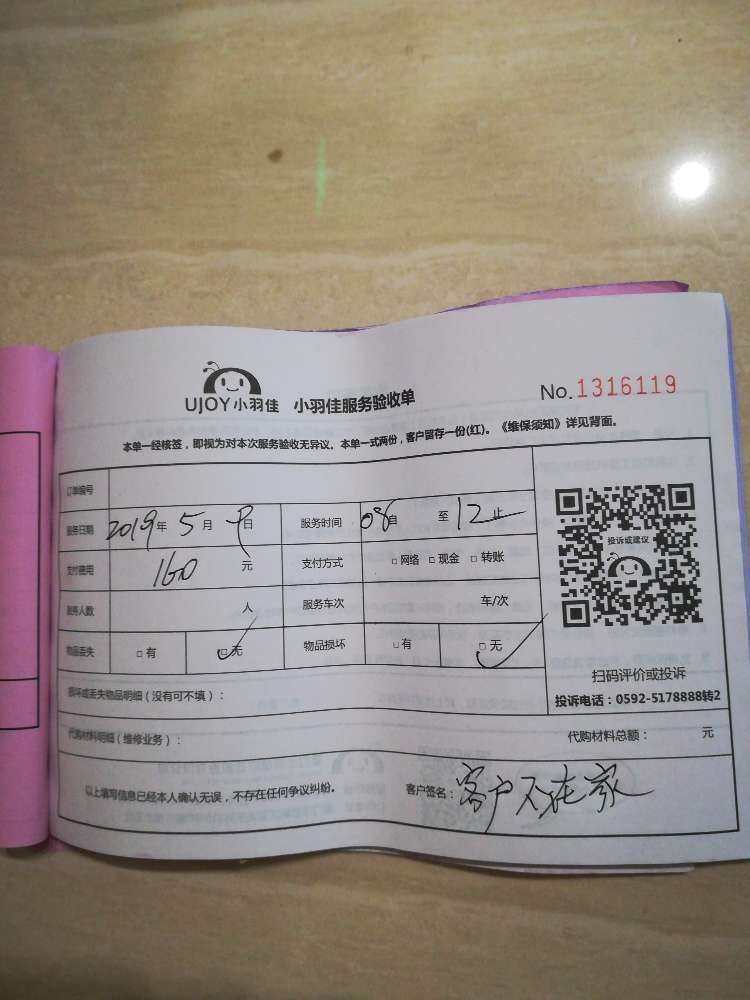 UJOY小羽佳 小羽佳服务验收单 No.1316119
本单一经核签，即视为对本次服务验收无异议。本单一式两份，客户留存一份(红)。《维保须知》详见背面。
订单编号
服务日期 2019年 5月 日 服务时间 08自 至 12止
支付费用 160 元 支付方式 □网络 □现金 □转账
服务人数 人 服务车次 车/次
物品丢失 □有 □无 物品损坏 □有 □无
投诉或建议
扫码评价或投诉
投诉电话：0592-5178888转2
损坏或丢失物品明细（没有可不填）：
代购材料明细（维修业务）： 代购材料总额： 元
以上填写信息已经本人确认无误，不存在任何争议纠纷。 客户签名：客户不在家